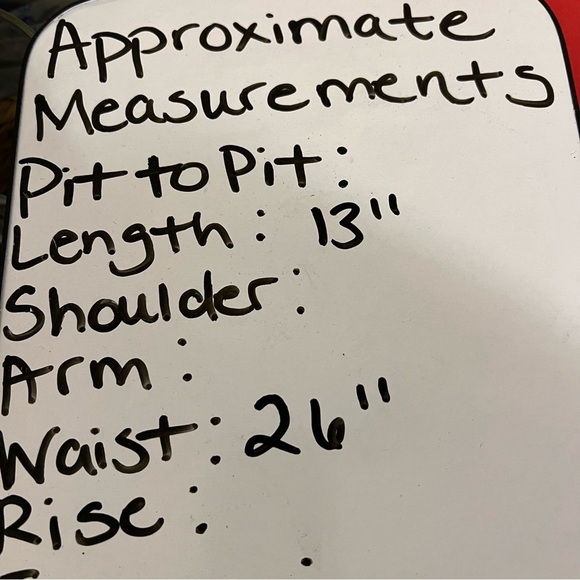 Approximate
Measurements
Pit to Pit:
Length: 13"
Shoulder:
Arm:
Waist: 26"
Rise: